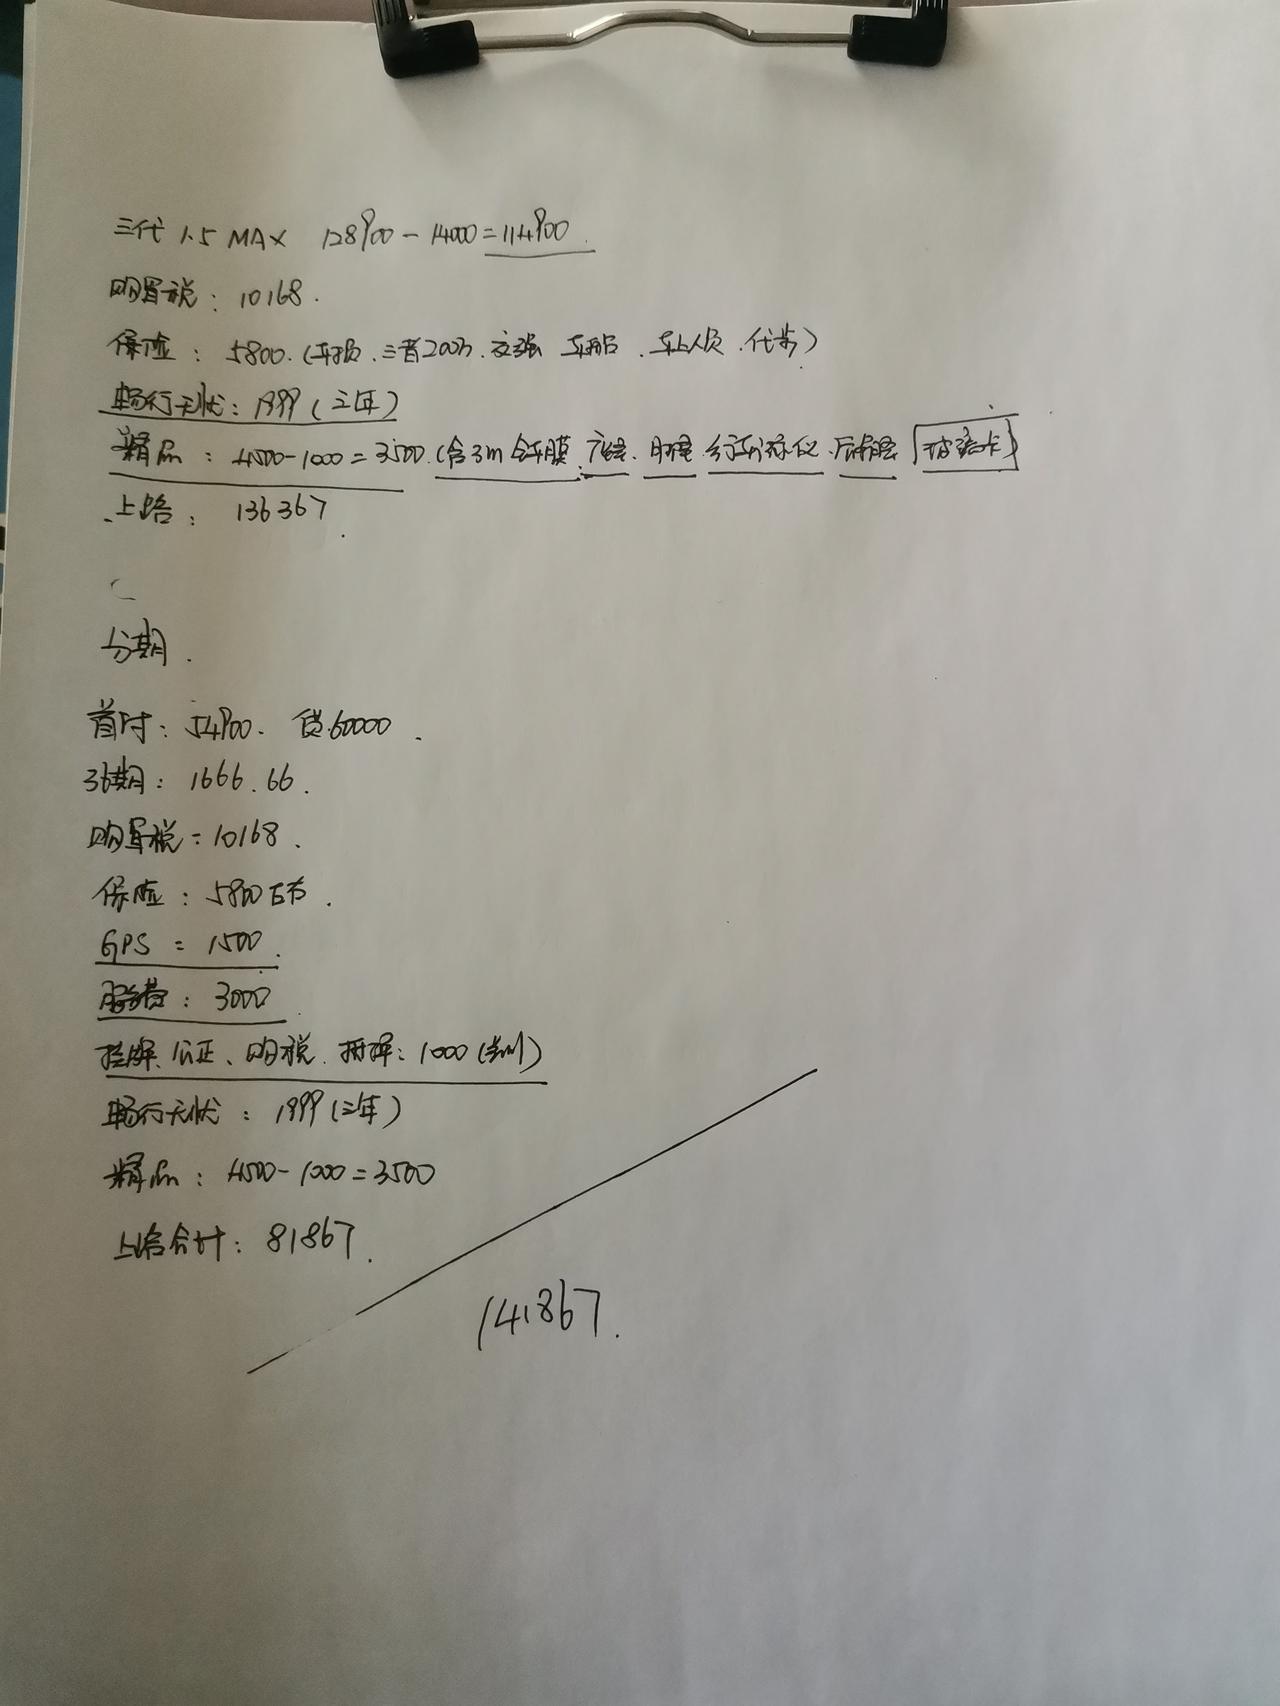 三代 1.5 MAX 128900-14000=114900.
购置税: 10168.
保险: 5800.(车损.三者200万.交强 车船.车上人员.代步)
畅行无忧: 1999(三年)
精品: 4500-1000=3500.(含3m全车膜.底.脚垫.行车记录仪.后备垫
上路: 136367.
分期.
首付: 54900. 贷60000.
36期: 1666.66.
购置税=10168.
保险: 5800左右.
GPS = 1500.
服务费: 3000.
挂牌、公正、购税. 押: 1000
畅行无忧: 1999(三年)
精品: 4500-1000=3500
上路合计: 81867.
141867.